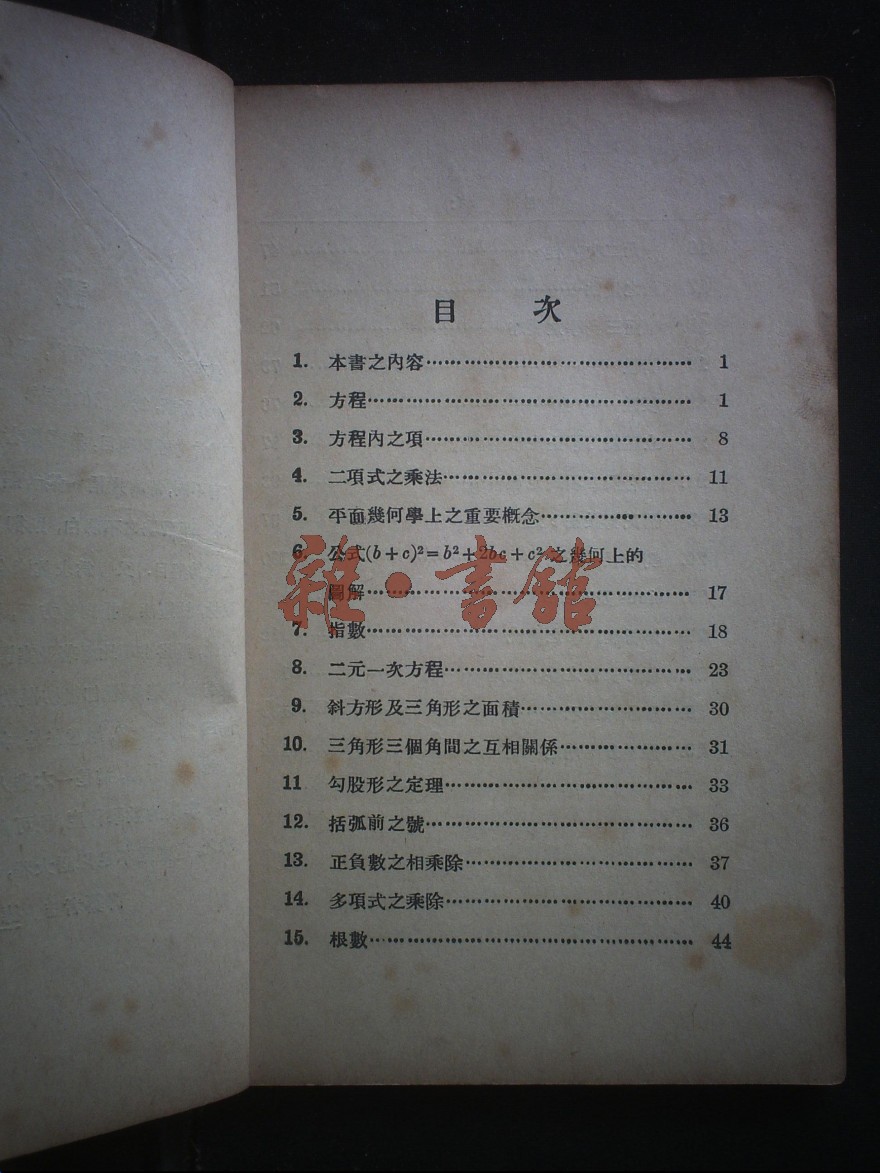 目 次
1. 本書之內容 1
2. 方程 1
3. 方程內之項 8
4. 二項式之乘法 11
5. 平面幾何學上之重要概念 13
6. 公式(b+c)²=b²+2bc+c²之幾何上的
圖解 17
7. 指數 18
8. 二元一次方程 23
9. 斜方形及三角形之面積 30
10. 三角形三個角間之互相關係 31
11 勾股形之定理 33
12. 括弧前之號 36
13. 正負數之相乘除 37
14. 多項式之乘除 40
15. 根數 44
雜·書館